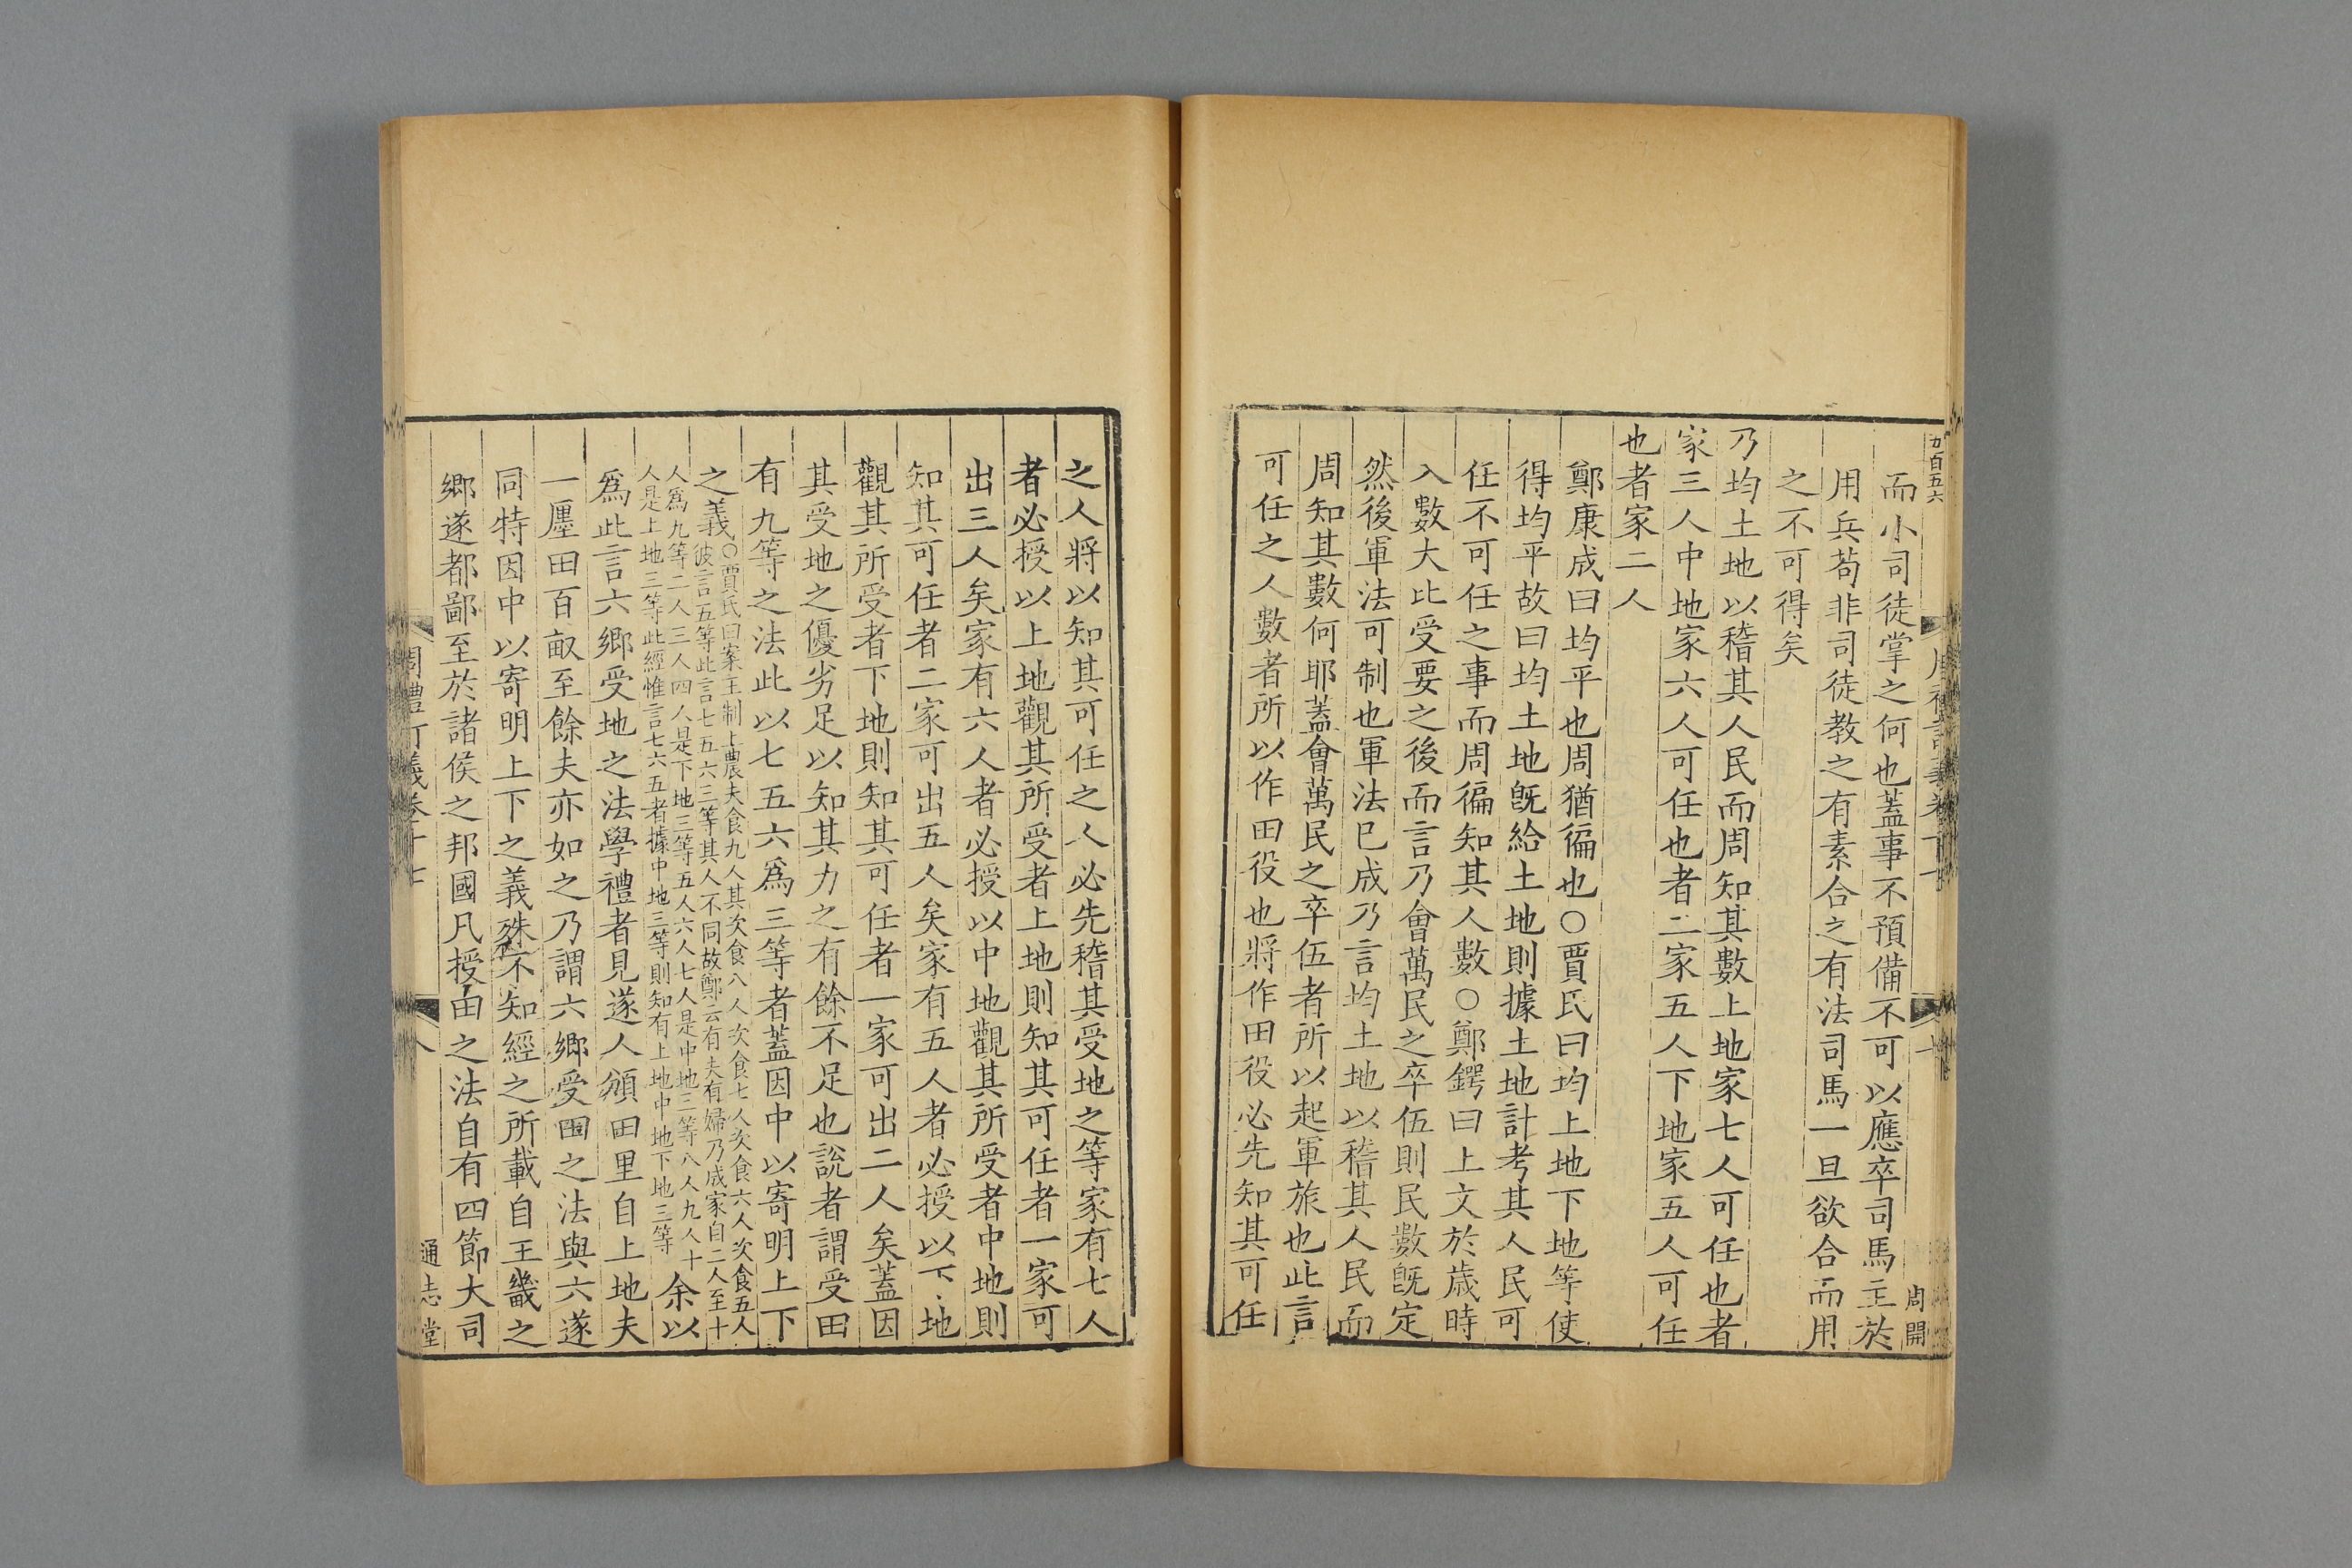 而小司徒掌之何也蓋事不預備不可以應卒司馬主於
用兵苟非司徒教之有素合之有法司馬一旦欲合而用
之不可得矣
乃均土地以稽其人民而周知其數上地家七人可任也者
家三人中地家六人可任也者二家五人下地家五人可任
也者家二人
鄭康成曰均平也周猶徧也○賈氏曰均上地下地等使
得均平故曰均土地旣給土地則據土地計考其人民可
任不可任之事而周徧知其人數○鄭鍔曰上文於歲時
入數大比受要之後而言乃會萬民之卒伍則民數旣定
然後軍法可制也軍法已成乃言均土地以稽其人民而
周知其數何耶蓋會萬民之卒伍者所以起軍旅也此言
可任之人數者所以作田役也將作田役必先知其可任
之人將以知其可任之人必先稽其受地之等家有七人
者必授以上地觀其所受者上地則知其可任者一家可
出三人矣家有六人者必授以中地觀其所受者中地則
知其可任者二家可出五人矣家有五人者必授以下地
觀其所受者下地則知其可任者一家可出二人矣蓋因
其受地之優劣足以知其力之有餘不足也說者謂受田
有九等之法此以七五六爲三等者蓋因中以寄明上下
之義○賈氏曰案王制上農夫食九人其次食八人次食七人次食六人次食五人
彼言五等此言七五六三等其人不同故鄭云有夫有婦乃成家自二人至十
人爲九等二人三人四人是下地三等五人六人七人是中地三等八人九人十
人是上地三等此經惟言七六五者據中地三等則知有上地中地下地三等余以
爲此言六鄉受地之法學禮者見遂人頒田里自上地夫
一廛田百畝至餘夫亦如之乃謂六鄉受田之法與六遂
同特因中以寄明上下之義殊不知經之所載自王畿之
鄉遂都鄙至於諸侯之邦國凡授田之法自有四節大司
周禮訂義卷十七
八
通志堂
周開